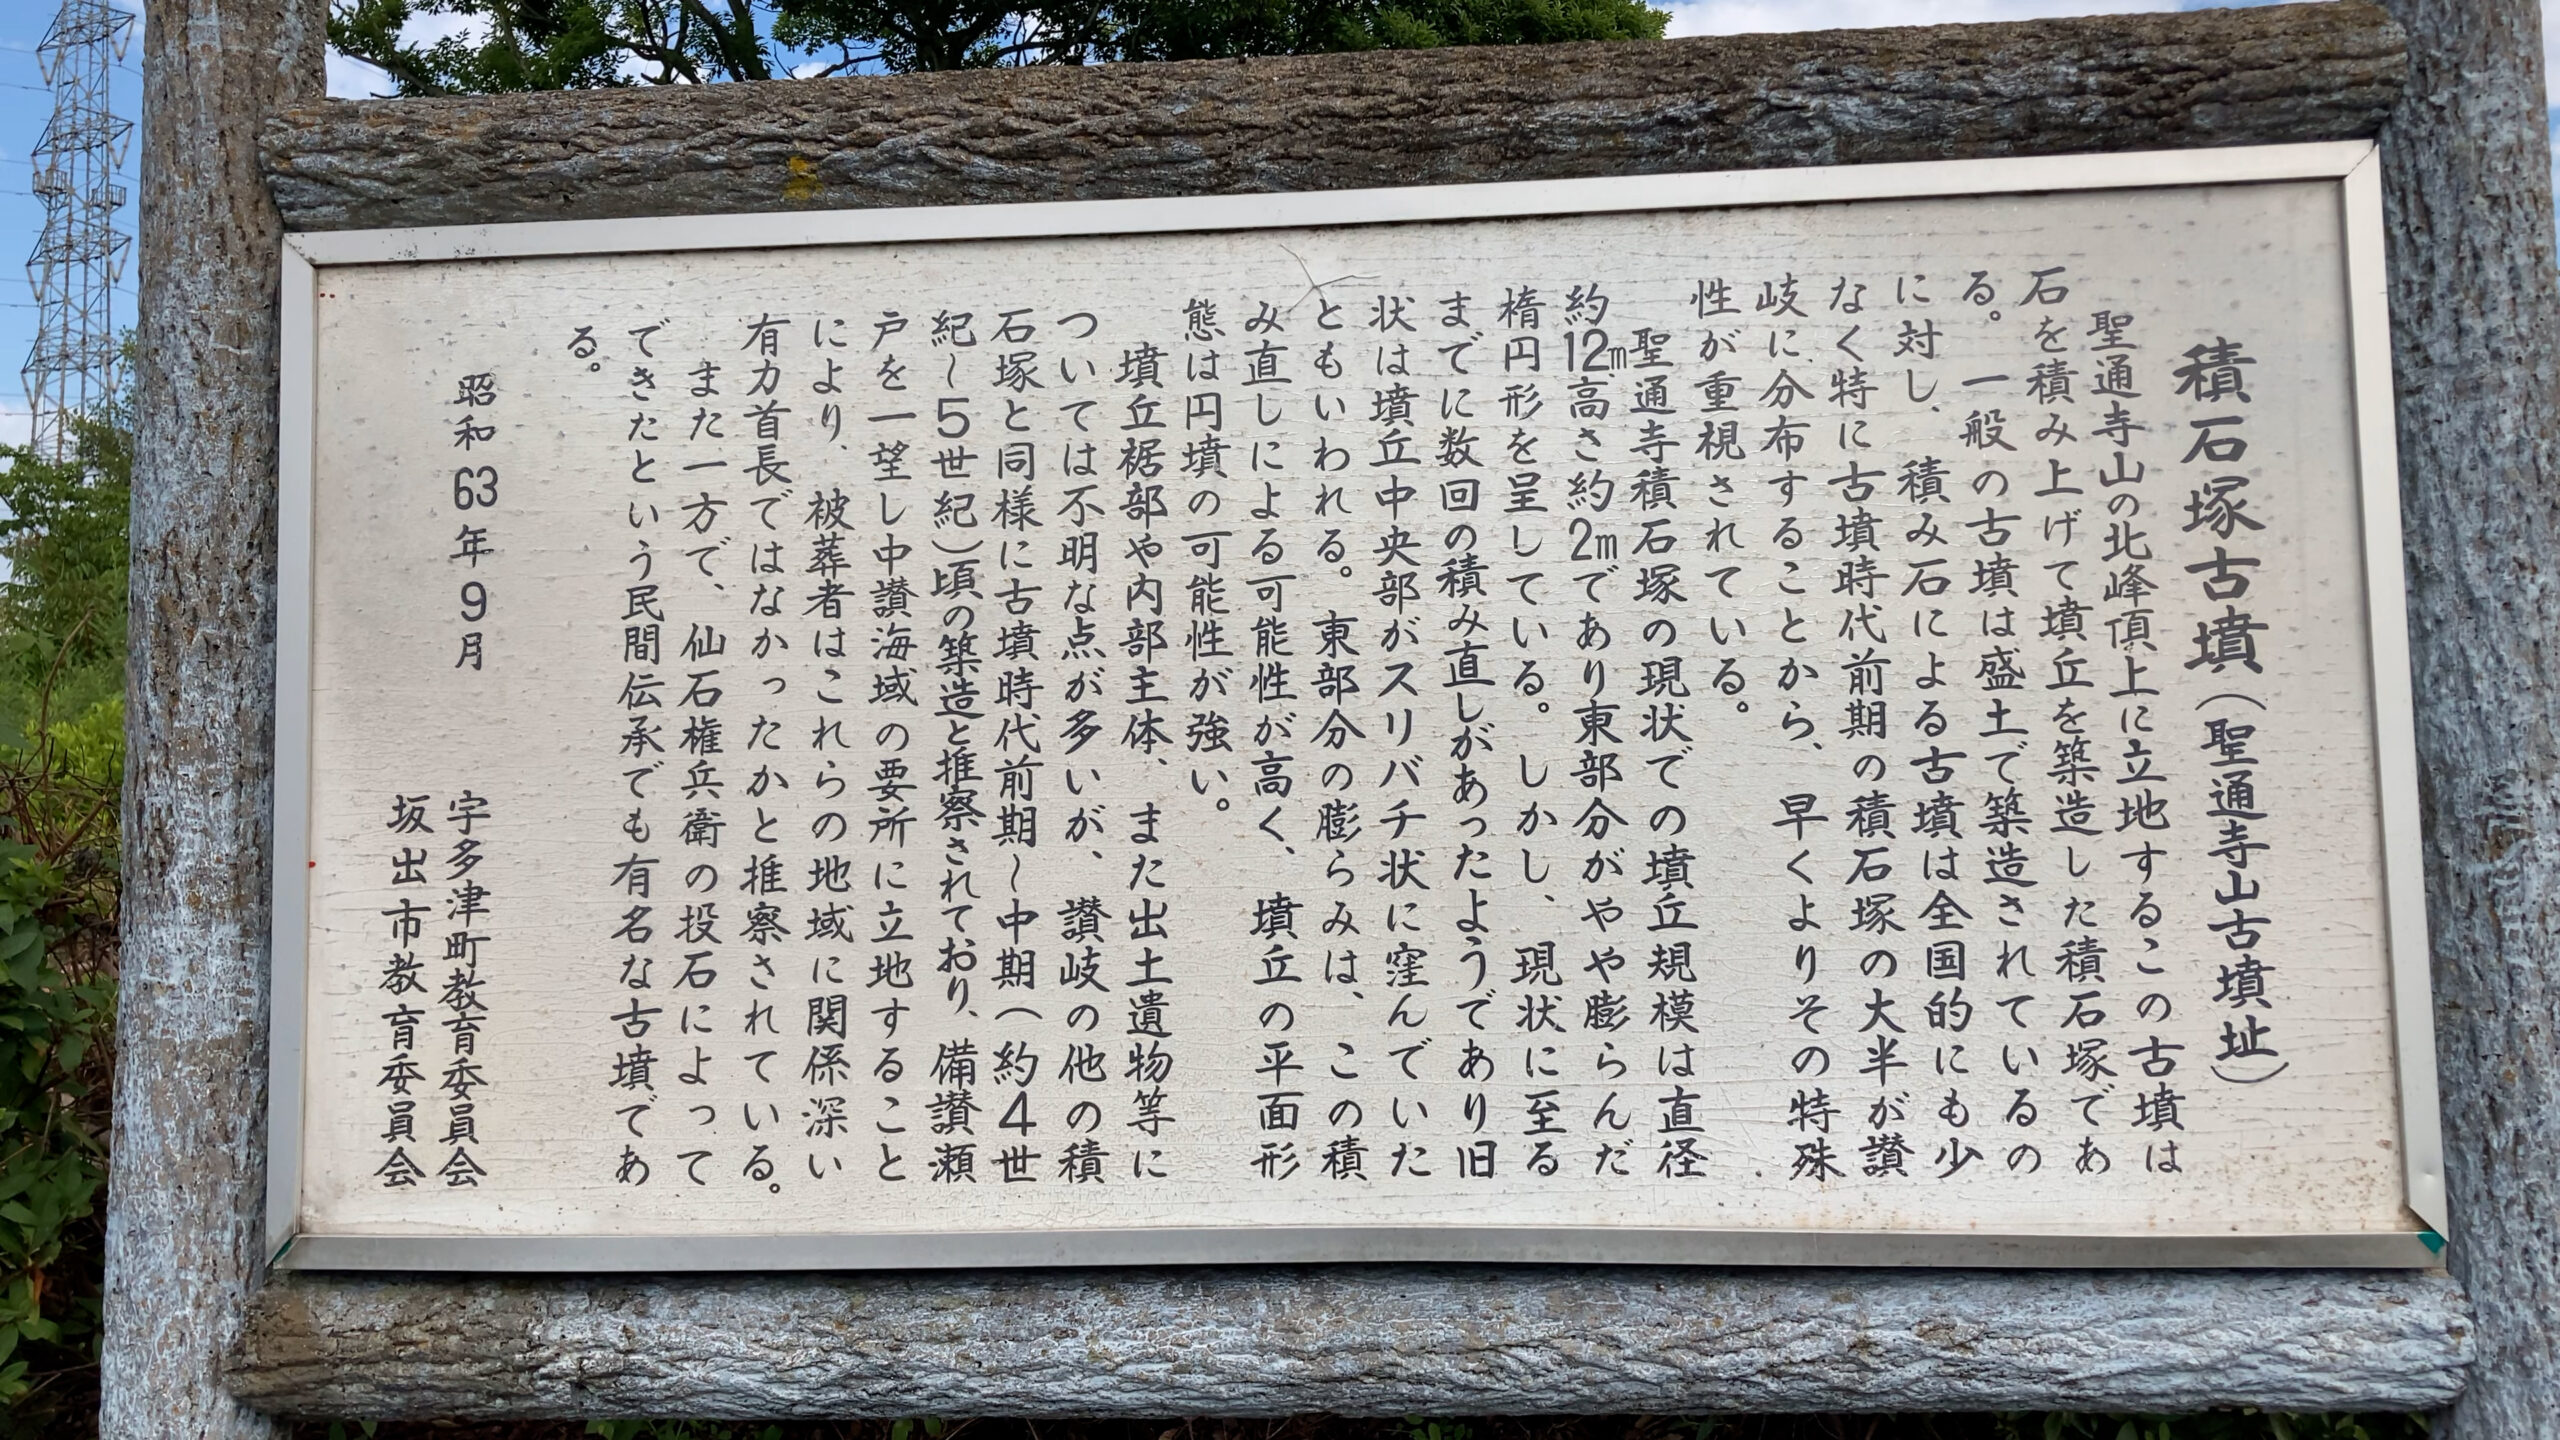 積石塚古墳(聖通寺山古墳址)
聖通寺山の北峰頂上に立地するこの古墳は
石を積み上げて墳丘を築造した積石塚であ
る。一般の古墳は盛土で築造されているの
に対し、積み石による古墳は全国的にも少
なく特に古墳時代前期の積石塚の大半が讃
岐に分布することから、早くよりその特殊
性が重視されている。
聖通寺積石塚の現状での墳丘規模は直径
約12m高さ約2mであり東部分がやや膨らんだ
楕円形を呈している。しかし、現状に至る
までに数回の積み直しがあったようであり旧
状は墳丘中央部がスリバチ状に窪んでいた
ともいわれる。東部分の膨らみは、この積
み直しによる可能性が高く、墳丘の平面形
態は円墳の可能性が強い。
墳丘裾部や内部主体、また出土遺物等に
ついては不明な点が多いが、讃岐の他の積
石塚と同様に古墳時代前期~中期(約4世
紀~5世紀)頃の築造と推察されており、備讃瀬
戸を一望し中讃海域の要所に立地すること
により、被葬者はこれらの地域に関係深い
有力首長ではなかったかと推察されている。
また一方で、仙石権兵衛の投石によって
できたという民間伝承でも有名な古墳であ
る。
昭和63年9月
宇多津町教育委員会
坂出市教育委員会